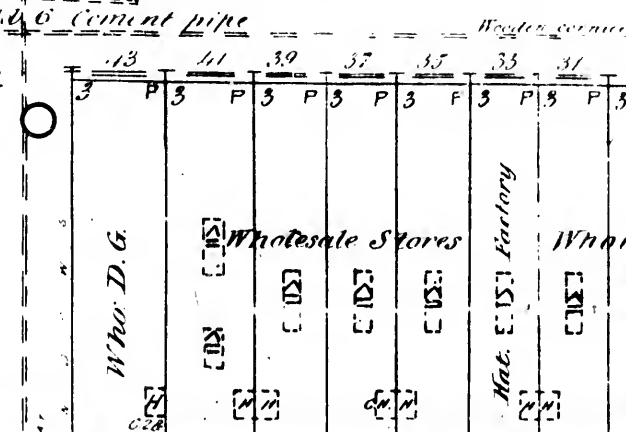 6 Cement pipe
Wooden cornice
43 41 39 37 35 33 31
3 P 3 P 3 P 3 P 3 P 3 P 3 P 3
Who. D.G.
Wholesale Stores
Hat. Factory
Who
H H H H H H H